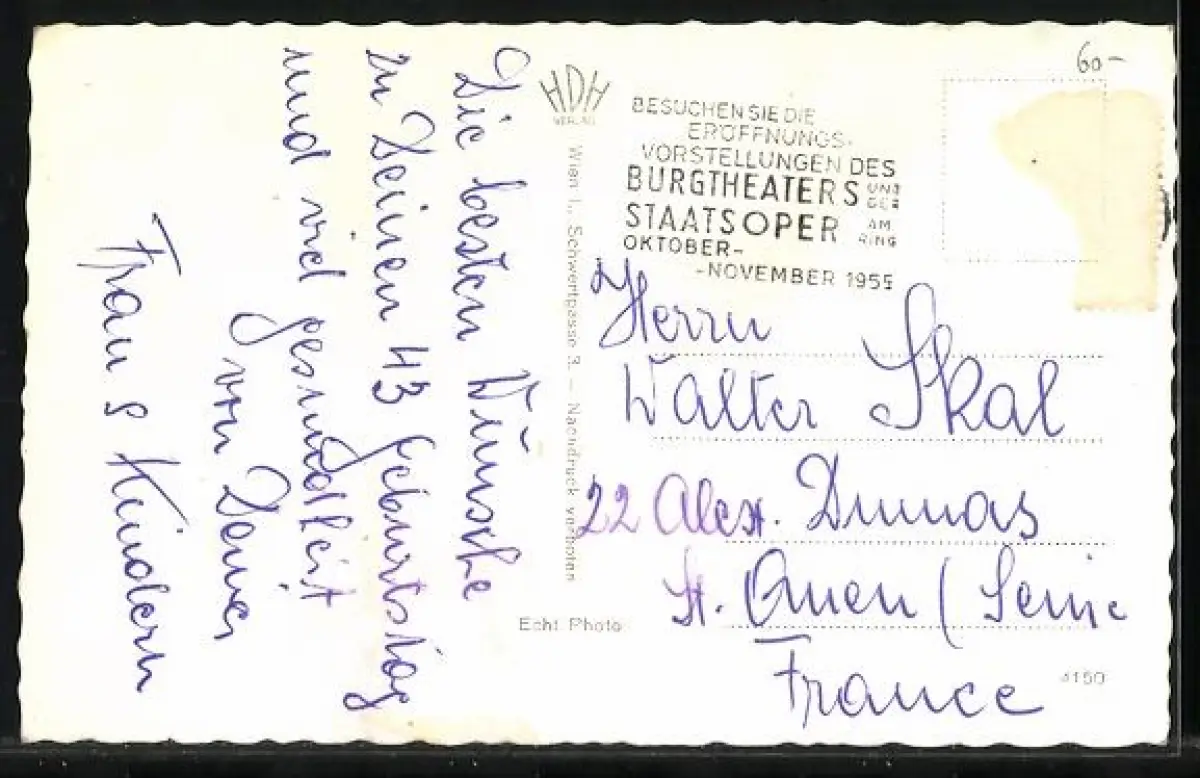 Die besten Wünsche
zu Deinen 43 Geburtstag
und viel gesundheit
von Deiner
Frau & Kindern
HDH
VERLAG
Wien I., Schwertgasse 3. – Nachdruck verboten
Echt Photo
60-
BESUCHEN SIE DIE
ERÖFFNUNGS-
VORSTELLUNGEN DES
BURGTHEATERS UND DER
STAATSOPER AM RING
OKTOBER-
-NOVEMBER 1955
Herrn
Walter Skal
22 Alex. Dumas
St. Ouen (Seine
France